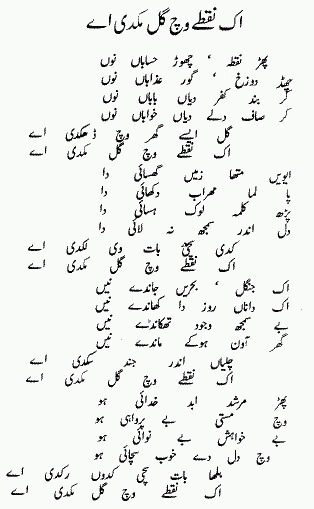 اک نقطے وچ گل مکدی اے
پھڑ نقطہ ، چھوڑ حساباں نوں
چھڈ دوزخ ، گور عذاباں نوں
کر بند کفر دیاں باباں نوں
کر صاف دلے دیاں خواباں نوں
گل ایسے گھر وچ ڈھکدی اے
اک نقطے وچ گل مکدی اے
ایویں متھا زمیں گھسائی دا
پا لما محراب دکھائی دا
پڑھ کلمہ لوک ہسائی دا
دل اندر سمجھ نہ لائی دا
کدی سچی بات وی لکدی اے
اک نقطے وچ گل مکدی اے
اک جنگل ، بحریں جاندے نیں
اک داناں روز دا کھاندے نیں
بے سمجھ وجود تھکاندے نیں
گھر آون ہوکے ماندے نیں
چلیاں اندر جند سکدی اے
اک نقطے وچ گل مکدی اے
پھڑ مرشد ابد خدائی ہو
وچ مستی بے پرواہی ہو
بے خواہش بے نوائی ہو
وچ دل دے خوب سچائی ہو
بلھا بات سچی کدوں رکدی اے
اک نقطے وچ گل مکدی اے